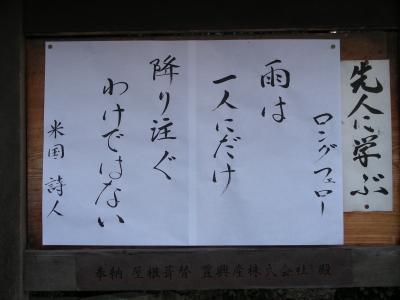 先人に学ぶ・
ロングフェロー
雨は
一人にだけ
降り注ぐ
わけではない
米国 詩人
奉納 屋根葺替 豊興産株式会社 殿